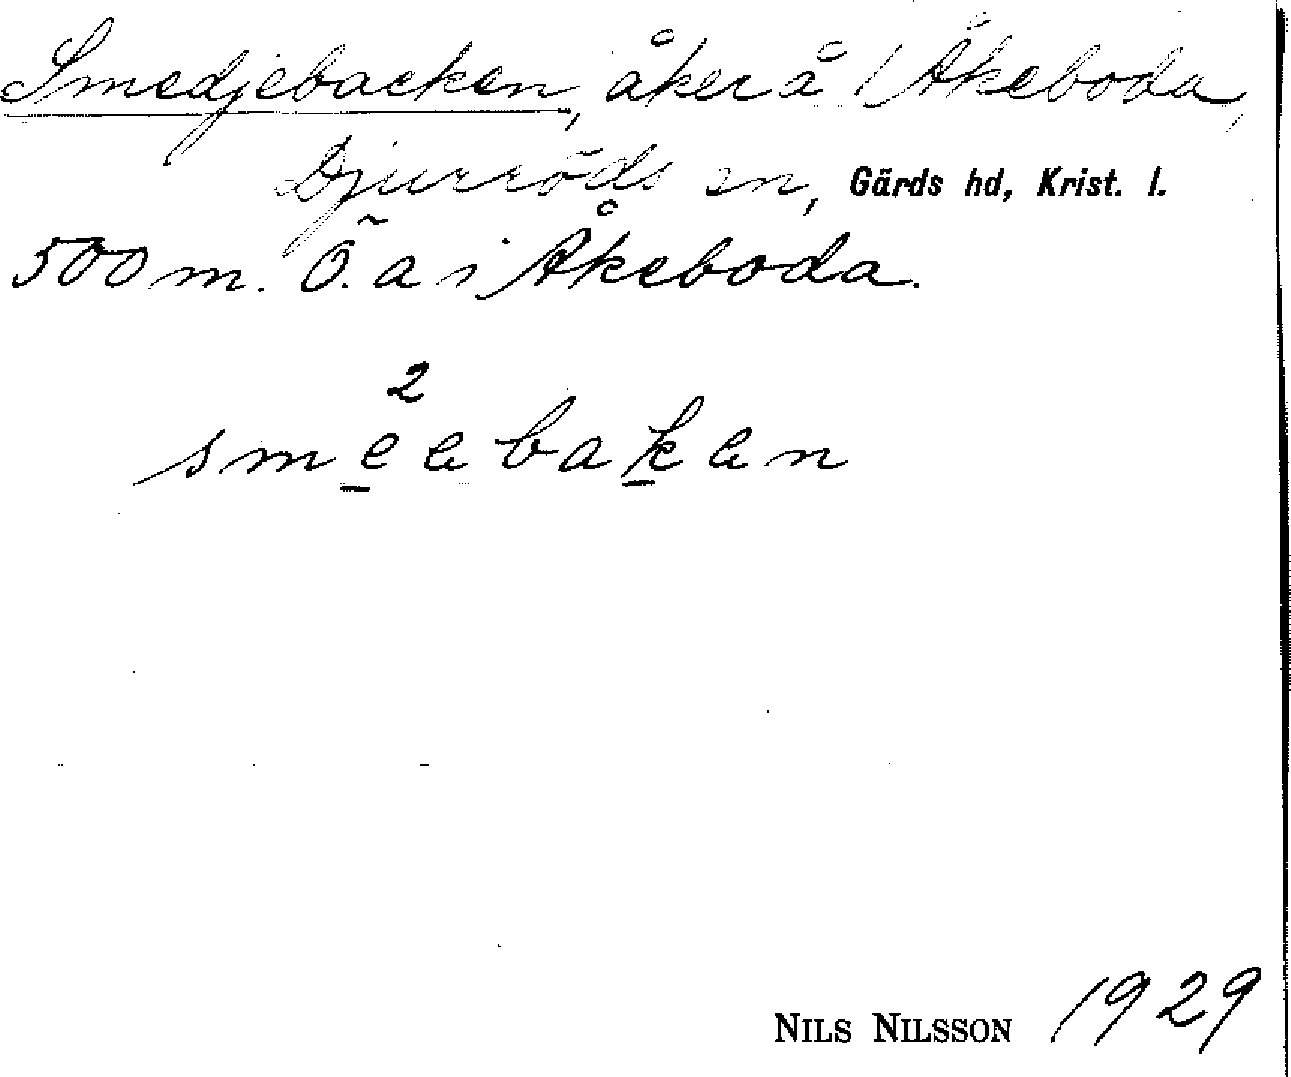 Smedjebacken, åker å 1 Åkeboda,
Djurröds sn, Gärds hd, Krist. l.
500 m. Ö. a i Åkeboda.
2
smeebaken
NILS NILSSON 1929